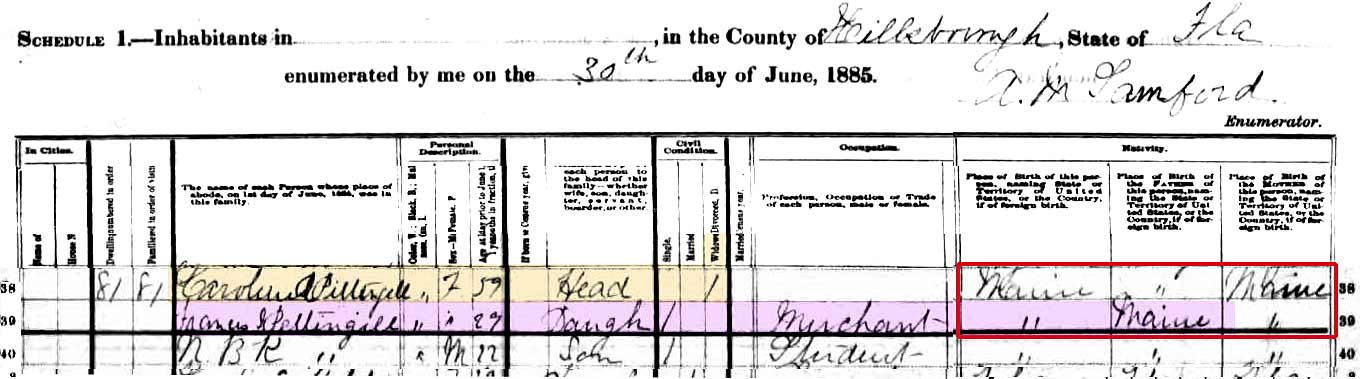 SCHEDULE 1.—Inhabitants in , in the County of Hillsborough, State of Fla
enumerated by me on the 30th day of June, 1885.
A. M Samford.
Enumerator.
In Cities. Personal Description. Civil Condition. Occupation. Nativity.
Name of
House N
Dwelling numbered in order
Families in order of visita
The name of each Person whose place of abode, on 1st day of June, 1885, was in this family.
Color, W.; Black, B.; Mul
Sex—M; Female, F
Age at last day prior to June 1
If born in Census year, give
each person to the head of this family—whether wife, son, daughter, servant, boarder, or other.
Single.
Married
Widowed Divorced, D.
Married census year.
Profession, Occupation or Trade of each person, male or female.
Place of Birth of this person, naming State or Territory of United States, or the Country, if of foreign birth.
Place of Birth of the FATHER of this person, naming the State or Territory of United States, or the Country, if of foreign birth.
Place of Birth of the MOTHER of this person, naming the State or Territory of United States, or the Country, if of foreign birth.
38 81 81 Caroline Pettingell " F 59 Head 1 Maine " Maine 38
39 Frances Pettingill " " 29 Daugh 1 Merchant " Maine " 39
40 N. B K " " M 22 Son 1 Student " " " 40